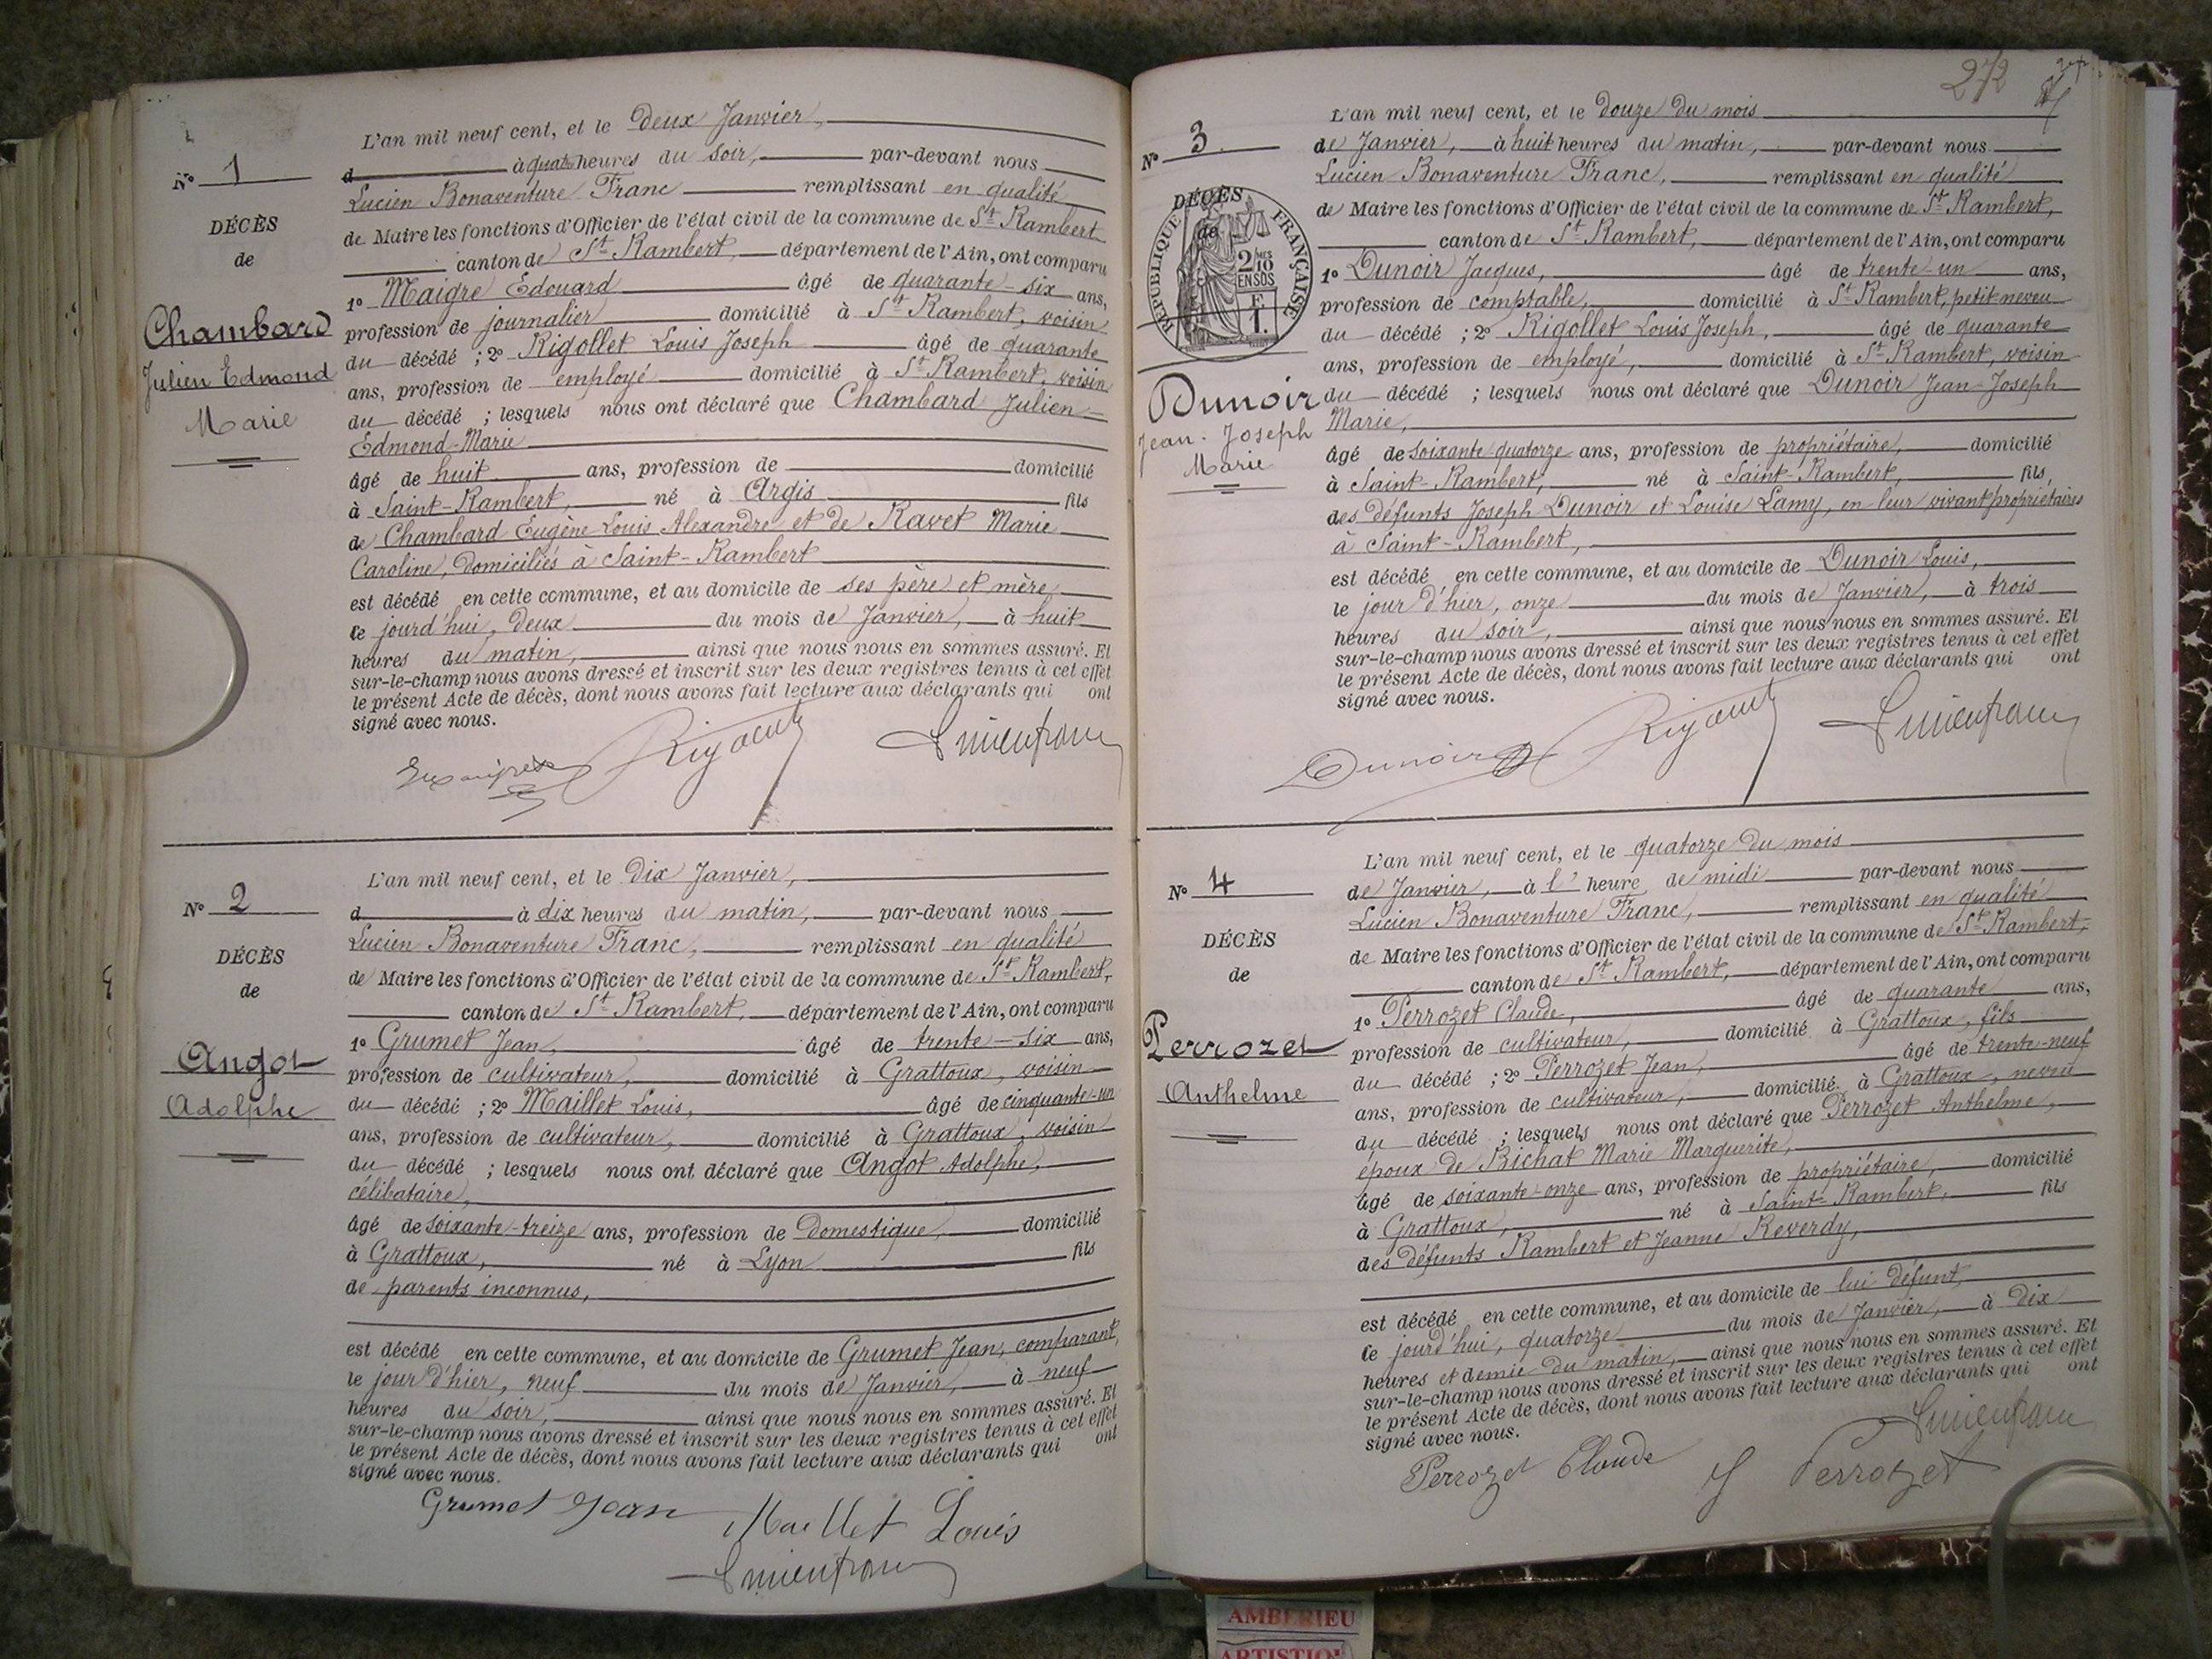 N° 1
DÉCÈS
de
Chambard
Julien Edmond
Marie
L'an mil neuf cent, et le deux Janvier,
d à quatre heures du soir, par-devant nous
Lucien Bonaventure Franc remplissant en qualité
de Maire les fonctions d'Officier de l'état civil de la commune de St Rambert
canton de St Rambert, département de l'Ain, ont comparu
1° Maigre Edouard âgé de quarante-six ans,
profession de journalier domicilié à St Rambert, voisin
du décédé ; 2° Rigollet Louis Joseph âgé de quarante
ans, profession de employé domicilié à St Rambert, voisin
du décédé ; lesquels nous ont déclaré que Chambard Julien-
Edmond-Marie
âgé de huit ans, profession de domicilié
à Saint-Rambert, né à Argis fils
de Chambard Eugène Louis Alexandre et de Ravet Marie
Caroline, domiciliés à Saint-Rambert
est décédé en cette commune, et au domicile de ses père et mère,
le jourd'hui, deux du mois de Janvier, à huit
heures du matin, ainsi que nous nous en sommes assuré. Et
sur-le-champ nous avons dressé et inscrit sur les deux registres tenus à cet effet
le présent Acte de décès, dont nous avons fait lecture aux déclarants qui ont
signé avec nous.
N° 2
DÉCÈS
de
Angot
Adolphe
L'an mil neuf cent, et le dix Janvier,
d à dix heures du matin, par-devant nous
Lucien Bonaventure Franc, remplissant en qualité
de Maire les fonctions d'Officier de l'état civil de la commune de St Rambert,
canton de St Rambert, département de l'Ain, ont comparu
1° Grumet Jean, âgé de trente-six ans,
profession de cultivateur, domicilié à Grattoux, voisin
du décédé ; 2° Maillet Louis, âgé de cinquante-un
ans, profession de cultivateur, domicilié à Grattoux, voisin
du décédé ; lesquels nous ont déclaré que Angot Adolphe,
célibataire,
âgé de soixante-treize ans, profession de domestique, domicilié
à Grattoux, né à Lyon fils
de parents inconnus,
est décédé en cette commune, et au domicile de Grumet Jean, comparant,
le jour d'hier, neuf du mois de Janvier, à neuf
heures du soir, ainsi que nous nous en sommes assuré. Et
sur-le-champ nous avons dressé et inscrit sur les deux registres tenus à cet effet
le présent Acte de décès, dont nous avons fait lecture aux déclarants qui ont
signé avec nous.
Grumet Jean Maillet Louis
272
N° 3
DÉCÈS
de
RÉPUBLIQUE FRANÇAISE
2 MES
10
EN SUS
F.
1.
Dunoir
Jean-Joseph
Marie
L'an mil neuf cent, et le douze du mois
de Janvier, à huit heures du matin, par-devant nous
Lucien Bonaventure Franc, remplissant en qualité
de Maire les fonctions d'Officier de l'état civil de la commune de St Rambert,
canton de St Rambert, département de l'Ain, ont comparu
1° Dunoir Jacques, âgé de trente-un ans,
profession de comptable, domicilié à St Rambert, petit neveu
du décédé ; 2° Rigollet Louis Joseph, âgé de quarante
ans, profession de employé, domicilié à St Rambert, voisin
du décédé ; lesquels nous ont déclaré que Dunoir Jean-Joseph
Marie,
âgé de soixante-quatorze ans, profession de propriétaire, domicilié
à Saint-Rambert, né à Saint-Rambert, fils,
des défunts Joseph Dunoir et Louise Lamy, en leur vivant propriétaires
à Saint-Rambert,
est décédé en cette commune, et au domicile de Dunoir Louis,
le jour d'hier, onze du mois de Janvier, à trois
heures du soir, ainsi que nous nous en sommes assuré. Et
sur-le-champ nous avons dressé et inscrit sur les deux registres tenus à cet effet
le présent Acte de décès, dont nous avons fait lecture aux déclarants qui ont
signé avec nous.
Dunoir
N° 4
DÉCÈS
de
Perrozet
Anthelme
L'an mil neuf cent, et le quatorze du mois
de Janvier, à l'heure de midi par-devant nous
Lucien Bonaventure Franc, remplissant en qualité
de Maire les fonctions d'Officier de l'état civil de la commune de St Rambert,
canton de St Rambert, département de l'Ain, ont comparu
1° Perrozet Claude, âgé de quarante ans,
profession de cultivateur, domicilié à Grattoux, fils
du décédé ; 2° Perrozet Jean, âgé de trente-neuf
ans, profession de cultivateur, domicilié à Grattoux, neveu
du décédé ; lesquels nous ont déclaré que Perrozet Anthelme,
époux de Bichat Marie Marguerite,
âgé de soixante-onze ans, profession de propriétaire, domicilié
à Grattoux, né à Saint-Rambert, fils
des défunts Rambert et Jeanne Reverdy,
est décédé en cette commune, et au domicile de lui défunt,
le jourd'hui, quatorze du mois de Janvier, à dix
heures et demie du matin, ainsi que nous nous en sommes assuré. Et
sur-le-champ nous avons dressé et inscrit sur les deux registres tenus à cet effet
le présent Acte de décès, dont nous avons fait lecture aux déclarants qui ont
signé avec nous.
Perrozet Claude J Perrozet
AMBERIEU